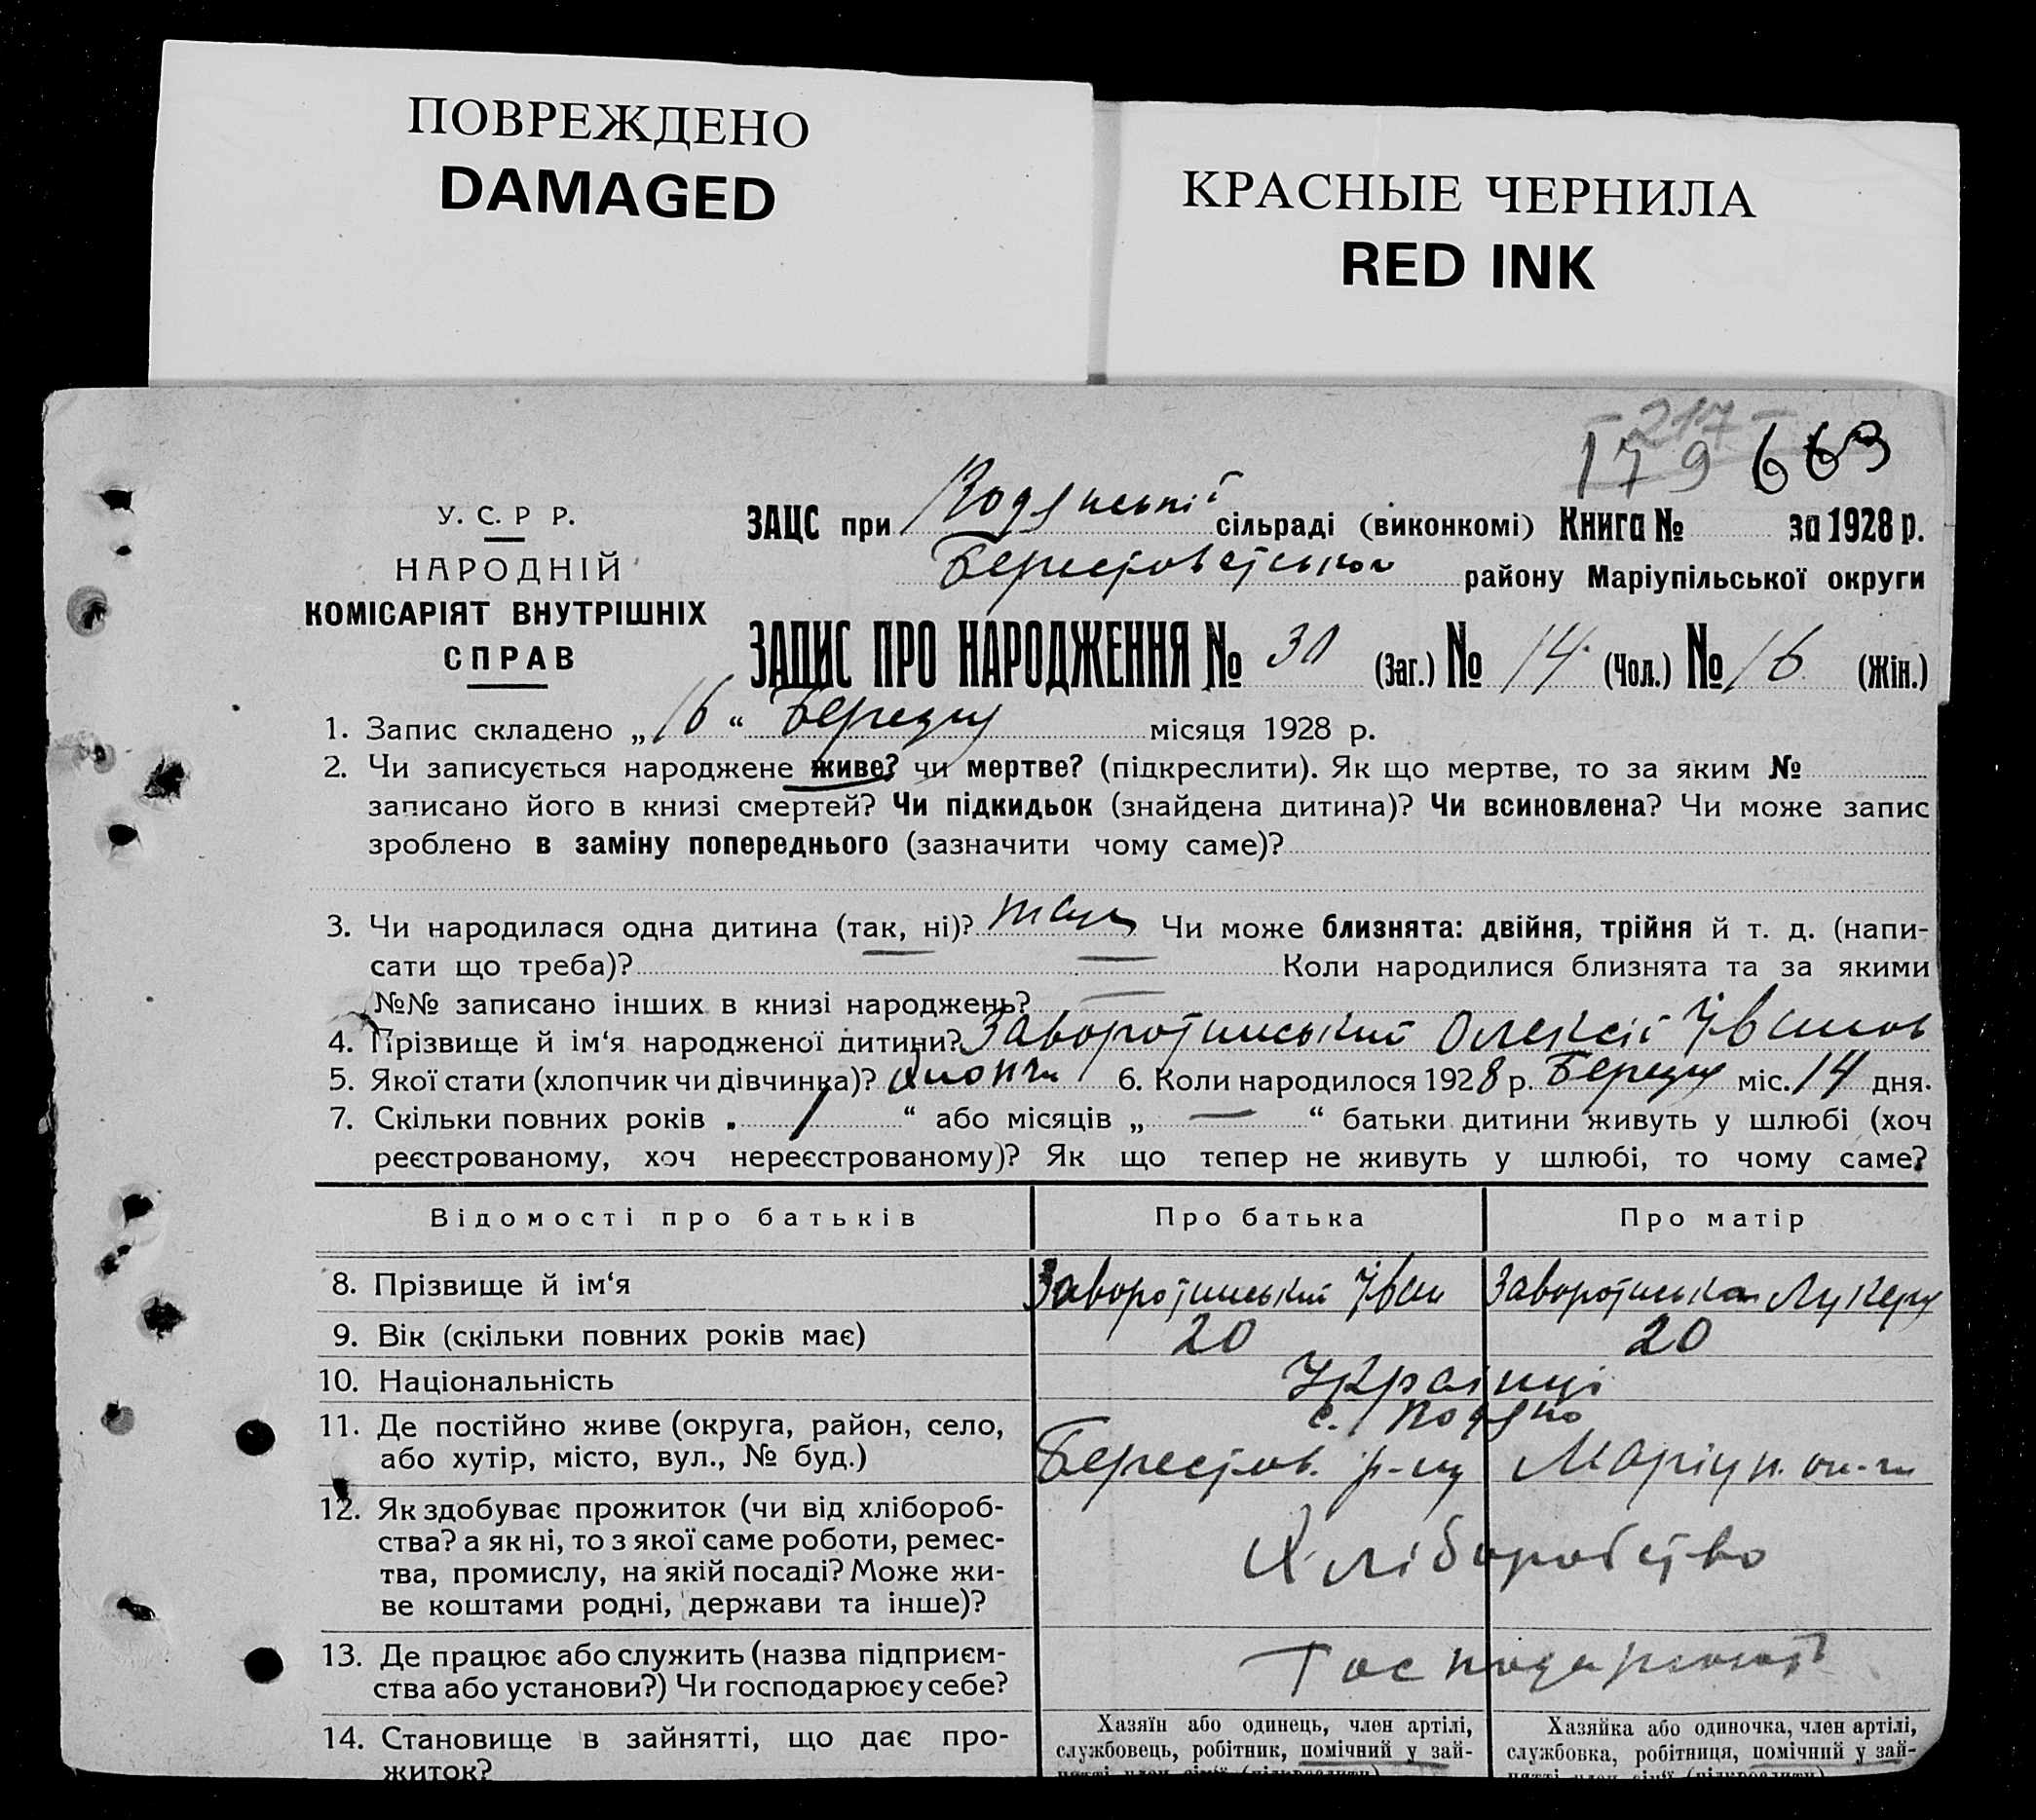 ПОВРЕЖДЕНО
DAMAGED
КРАСНЫЕ ЧЕРНИЛА
RED INK
217
179 663
У. С. Р Р.
НАРОДНІЙ
КОМІСАРІЯТ ВНУТРІШНІХ
СПРАВ
ЗАЦС при Водянській сільраді (виконкомі) Книга № за 1928 р.
Берестоветського району Маріупільської округи
ЗАПИС ПРО НАРОДЖЕННЯ № 30 (Заг.) № 14 (Чол.) № 16 (Жін.)
1. Запис складено „16“ Березня місяця 1928 р.
2. Чи записується народжене живе? чи мертве? (підкреслити). Як що мертве, то за яким №
записано його в книзі смертей? Чи підкидьок (знайдена дитина)? Чи всиновлена? Чи може запис
зроблено в заміну попереднього (зазначити чому саме)?
3. Чи народилася одна дитина (так, ні)? так Чи може близнята: двійня, трійня й т. д. (напи-
сати що треба)? — Коли народилися близнята та за якими
№№ записано інших в книзі народжень? —
4. Прізвище й ім‘я народженої дитини? Заворотинський Олексій Іванов
5. Якої стати (хлопчик чи дівчинка)? хлопчик 6. Коли народилося 1928 р. Березня міс. 14 дня.
7. Скільки повних років „ 1 “ або місяців „ — “ батьки дитини живуть у шлюбі (хоч
реєстрованому, хоч нереєстрованому)? Як що тепер не живуть у шлюбі, то чому саме?
Відомості про батьків Про батька Про матір
8. Прізвище й ім‘я Заворотинський Іван Заворотинська Лукеря
9. Вік (скільки повних років має) 20 20
10. Національність Українці
11. Де постійно живе (округа, район, село, с. Водяно
або хутір, місто, вул., № буд.) Берестов. р-ну Маріуп. ок-ги
12. Як здобуває прожиток (чи від хлібороб-
ства? а як ні, то з якої саме роботи, ремес-
тва, промислу, на якій посаді? Може жи-
ве коштами родні, держави та інше)? Хліборобство
13. Де працює або служить (назва підприєм-
ства або установи?) Чи господарює у себе?
14. Становище в зайнятті, що дає про-
житок?
Хазяїн або одинець, член артілі,
службовець, робітник, помічний у зай-
нятті член сім'ї (підкреслити)
Хазяйка або одиночка, член артілі,
службовка, робітниця, помічний у зай-
нятті член сім'ї (підкреслити)